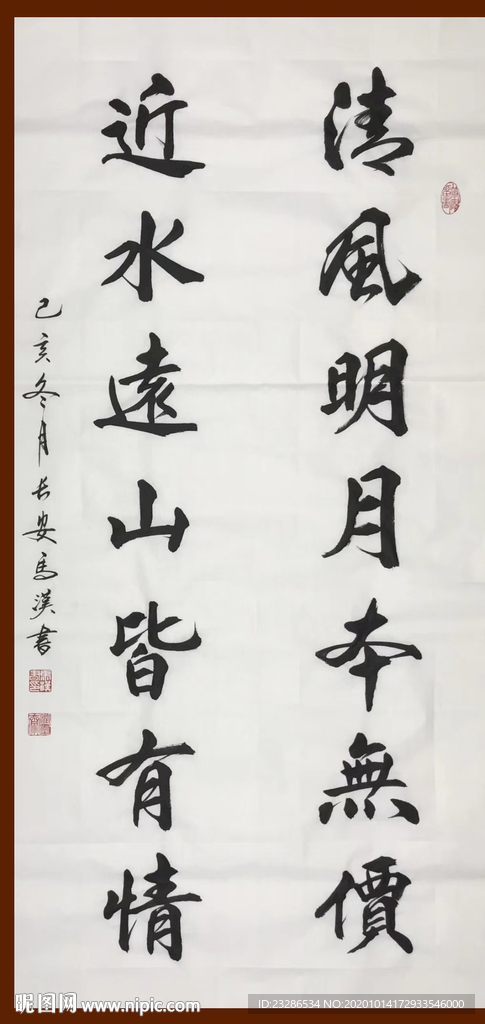 清風明月本無價
近水遠山皆有情
己亥冬月長安馬漢書
昵图网 www.nipic.com
ID:23286534 NO:20201014172933546000